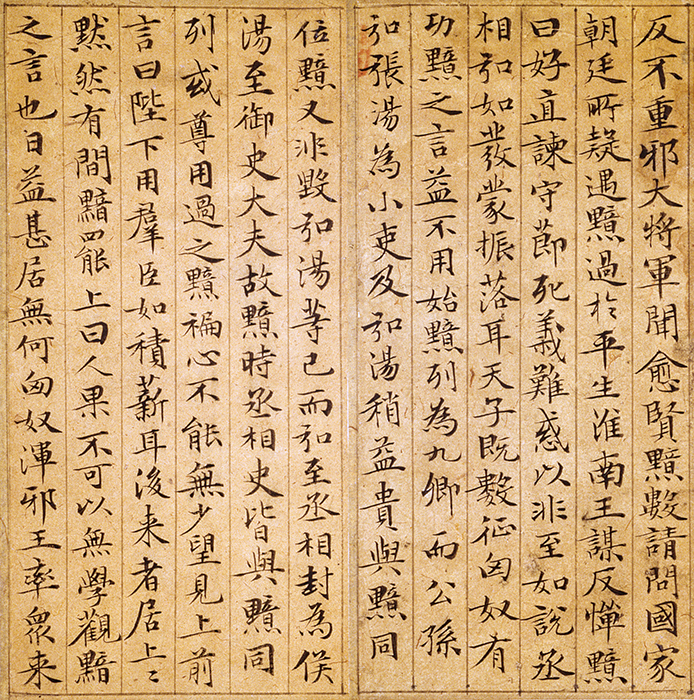 反不重邪大將軍聞愈賢黯數請問國家
朝廷所疑遇黯過於平生淮南王謀反憚黯
曰好直諫守節死義難惑以非至如說丞
相弘如發蒙振落耳天子既數征匈奴有
功黯之言益不用始黯列為九卿而公孫
弘張湯為小吏及弘湯稍益貴與黯同
位黯又非毀弘湯等已而弘至丞相封為侯
湯至御史大夫故黯時丞相史皆與黯同
列或尊用過之黯褊心不能無少望見上前
言曰陛下用羣臣如積薪耳後来者居上〻
默然有間黯罷上曰人果不可以無學觀黯
之言也日益甚居無何匈奴渾邪王率衆来